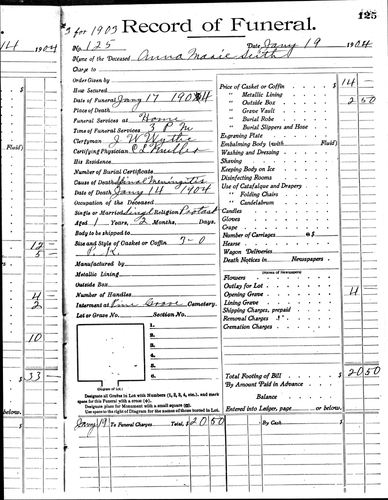 125
14 1904
3 for 1903 Record of Funeral.
No. 125 Date Jany 19 1904
Name of the Deceased Anna Marie
Charge to
Order Given by
How Secured
Date of Funeral Jany 17 1904
Place of Death
Funeral Services at Home
Time of Funeral Services 3 P M
Clergyman J W
Certifying Physician C L
His Residence
Number of Burial Certificate
Cause of Death Spinal Meningitis
Date of Death Jany 14 1904
Occupation of the Deceased
Single or Married Single Religion Protast
Aged 1 Years, 2 Months, Days.
Body to be shipped to
Size and Style of Casket or Coffin 3-0
Manufactured by
Metallic Lining
Outside Box
Number of Handles
Interment at Pine Grove Cemetery.
Lot or Grave No. Section No.
1.
2.
3.
4.
5.
6.
(Diagram of Lot.)
Designate all Graves in Lot with Numbers (1, 2, 3, 4, etc.), and mark
space for this Funeral with a cross (+).
Designate place for Monument with a small square (□).
Use space to the right of Diagram for the names of those buried in Lot.
Jany 19 To Funeral Charges Total, $ 20 50
Price of Casket or Coffin $ 14 —
" Metallic Lining
" Outside Box 2 50
" Grave Vault
" Burial Robe
" Burial Slippers and Hose
Engraving Plate
Embalming Body (with Fluid)
Washing and Dressing
Shaving
Keeping Body on Ice
Disinfecting Rooms
Use of Catafalque and Drapery
" Folding Chairs
" Candelabrum
Candles
Gloves
Crape
Number of Carriages @ $
Hearse
Wagon Deliveries
Death Notices in Newspapers
(Names of Newspapers)
Flowers
Outlay for Lot
Opening Grave 4 —
Lining Grave
Shipping Charges, prepaid
Removal Charges
Cremation Charges
Total Footing of Bill $ 20 50
By Amount Paid in Advance
Balance
Entered into Ledger, page or below.
By Cash $
$
Fluid)
12 —
5 —
4 —
2
10
$ 33 —
below.
$